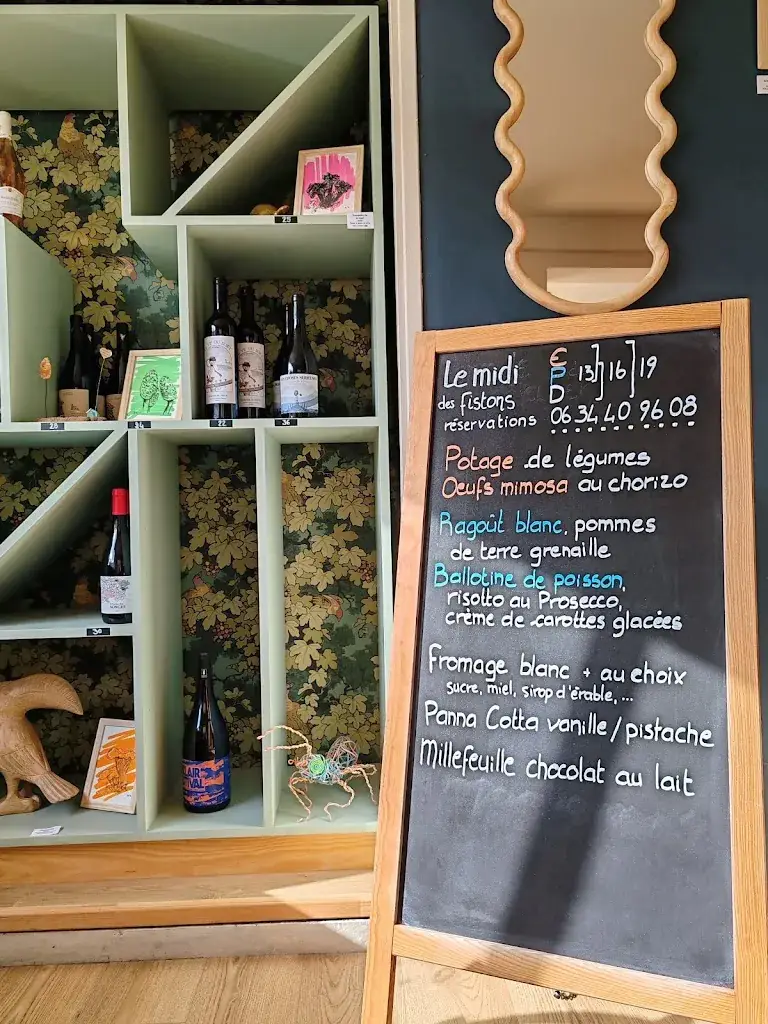 Le midi
des fistons
réservations
E
P
D
13 16 19
06 34 40 96 08
Potage de légumes
Oeufs mimosa au chorizo
Ragoût blanc, pommes
de terre grenaille
Ballotine de poisson,
risotto au Prosecco,
crème de carottes glacées
Fromage blanc + au choix
sucre, miel, sirop d'érable, ...
Panna Cotta vanille/pistache
Millefeuille chocolat au lait
25
28
34
22
36
30